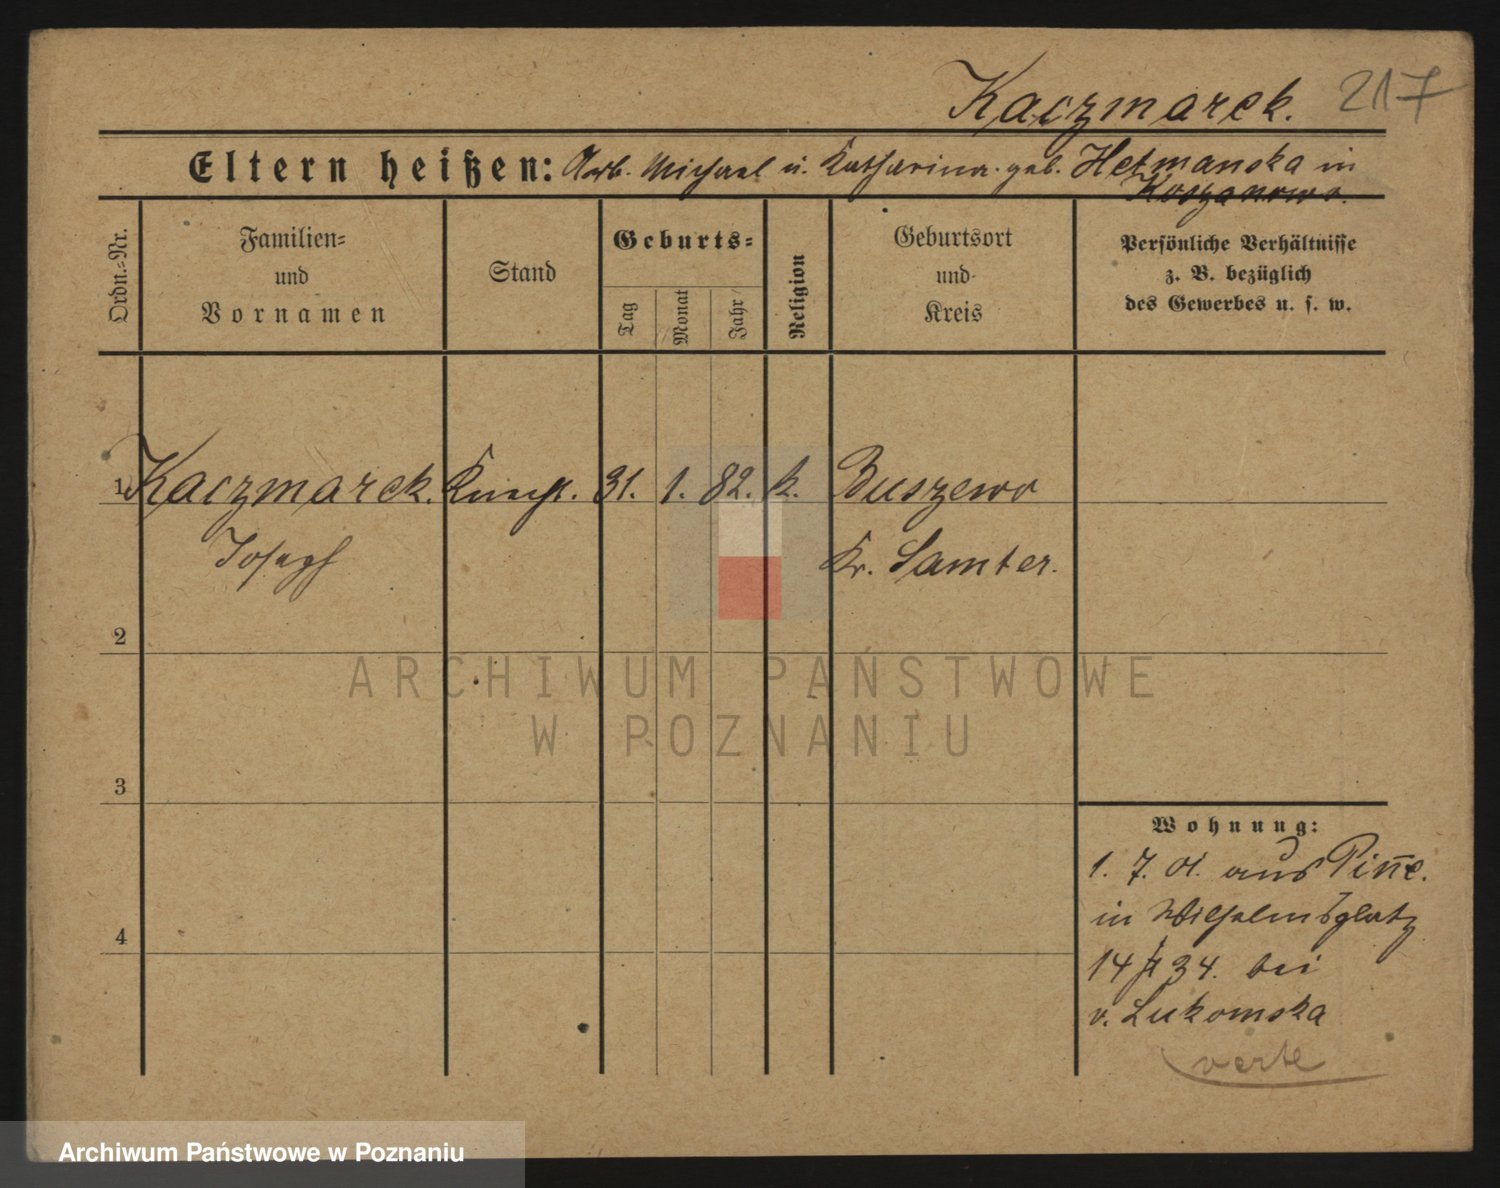 Kaczmarek. 217
Eltern heißen: Arb. Michael u. Katharina geb. Hetmanska in
Koszanowo.
Ordn.-Nr.
Familien-
und
Vornamen
Stand
Geburts-
Tag
Monat
Jahr
Religion
Geburtsort
und
Kreis
Persönliche Verhältnisse
z. B. bezüglich
des Gewerbes u. s. w.
1 Kaczmarek. Knecht. 31. 1. 82. k. Buszewo
Joseph Kr. Samter.
2
ARCHIWUM PAŃSTWOWE
W POZNANIU
3
4
Wohnung:
1. 7. 01. aus Pinne.
in Wilhelmsplatz
14 34. bei
v. Lukomska
verte
Archiwum Państwowe w Poznaniu